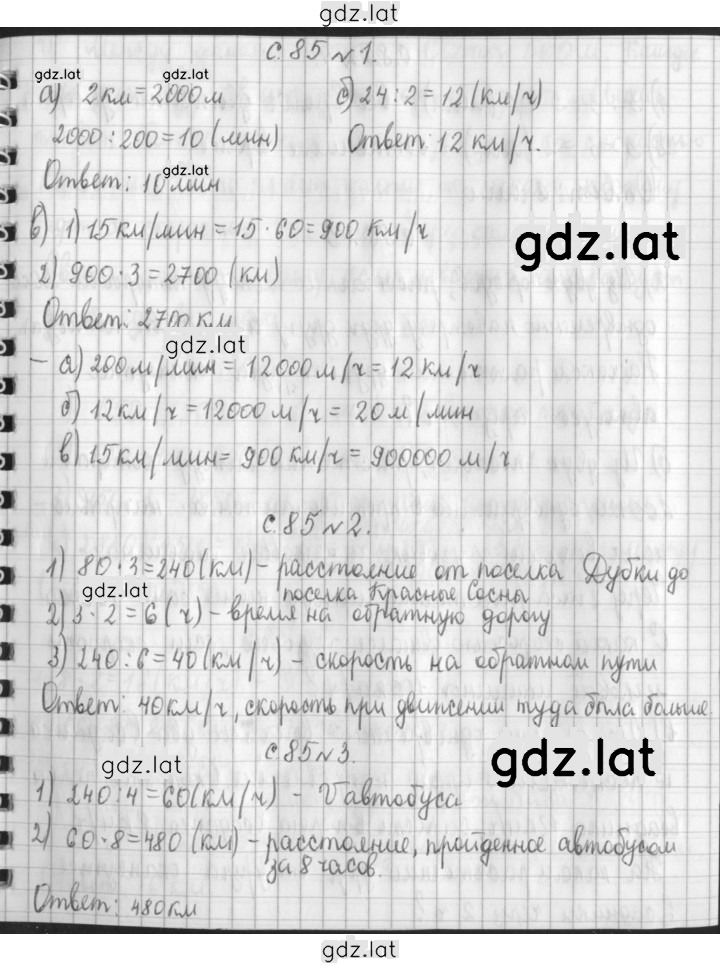 gdz.lat
с.85 №1.
gdz.lat gdz.lat
а) 2 км = 2000 м б) 24 : 2 = 12 (км/ч)
2000 : 200 = 10 (мин) Ответ: 12 км/ч.
gdz.lat
Ответ: 10 мин
в) 1) 15 км/мин = 15 · 60 = 900 км/ч
gdz.lat
2) 900 · 3 = 2700 (км)
Ответ: 2700 км
gdz.lat
- а) 200 м/мин = 12000 м/ч = 12 км/ч
б) 12 км/ч = 12000 м/ч = 20 м/мин
в) 15 км/мин = 900 км/ч = 900000 м/ч
с.85 №2.
1) 80 · 3 = 240 (км) - расстояние от поселка Дубки до
поселка Красные Сосны
gdz.lat
2) 3 · 2 = 6 (ч) - время на обратную дорогу
3) 240 : 6 = 40 (км/ч) - скорость на обратном пути
Ответ: 40 км/ч, скорость при движении туда была больше.
с.85 №3.
gdz.lat gdz.lat
1) 240 : 4 = 60 (км/ч) - V автобуса
2) 60 · 8 = 480 (км) - расстояние, пройденное автобусом
за 8 часов.
Ответ: 480 км
gdz.lat